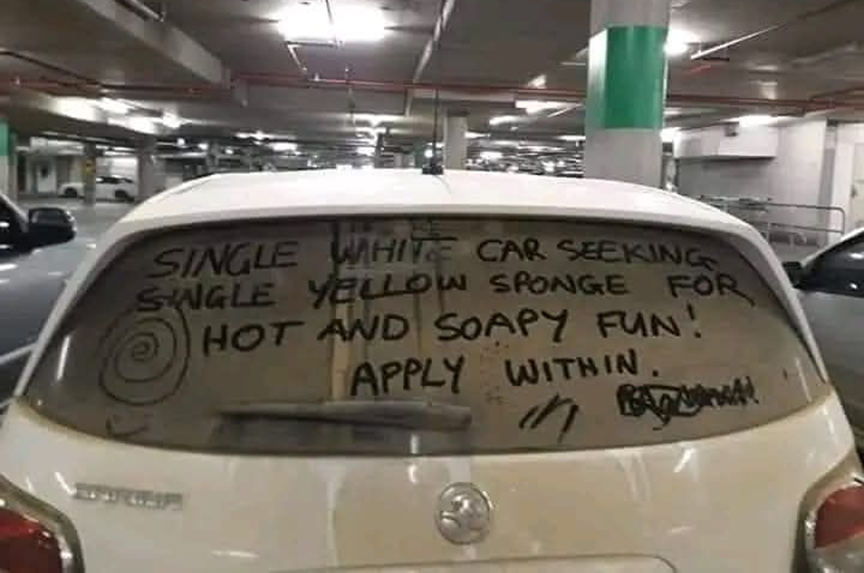 SINGLE WHITE CAR SEEKING
SINGLE YELLOW SPONGE FOR
HOT AND SOAPY FUN!
APPLY WITHIN.